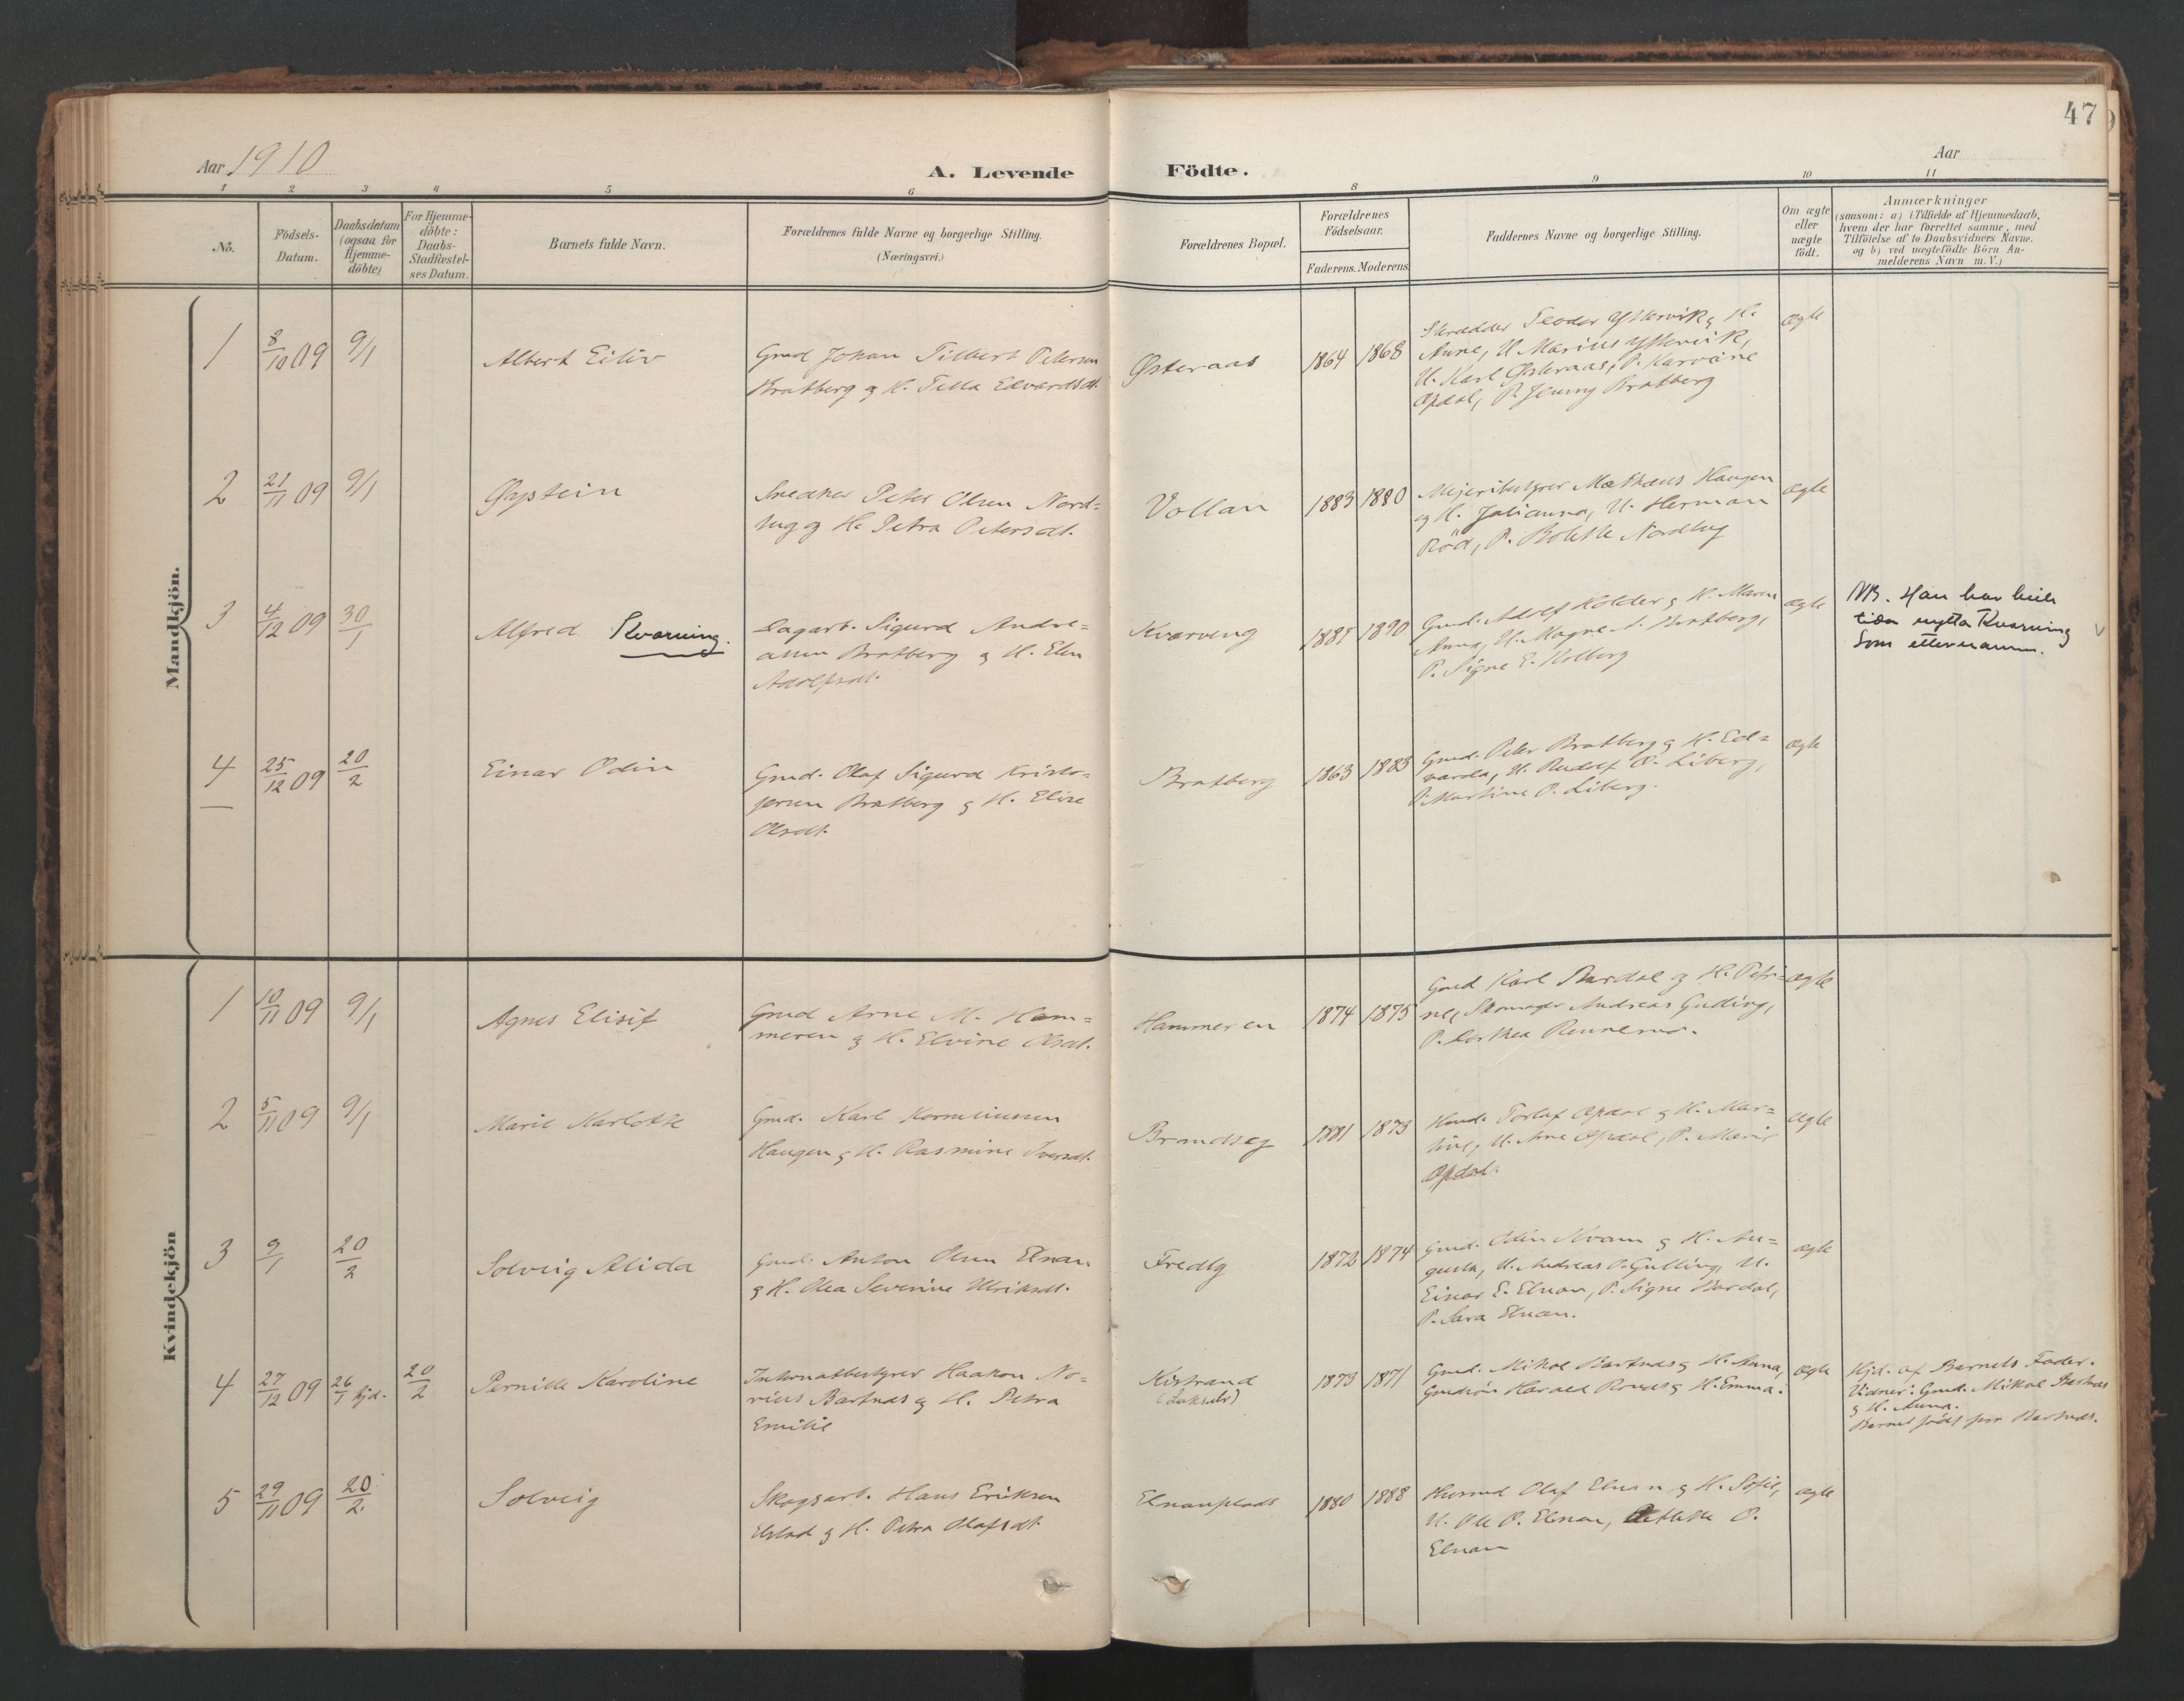 47
Aar 1910
A. Levende Födte.
Aar
1 2 3 4 5 6 8 9 10 11
No.
Födsels-
Datum.
Daabsdatum
(ogsaa for
Hjemme-
döbte)
For Hjemme-
döbte:
Daabs-
Stadfæstel-
ses Datum.
Barnets fulde Navn.
Forældrenes fulde Navne og borgerlige Stilling.
(Næringsvei.)
Forældrenes Bopæl.
Forældrenes
Födselsaar.
Faderens. Moderens.
Faddernes Navne og borgerlige Stilling.
Om ægte
eller
uægte
födt.
Anmærkninger
(saasom: a) i Tilfælde af Hjemmedaab,
hvem der har forrettet samme, med
Tilföielse af to Daabsvidners Navne.
og b) ved uægtefödte Börn An-
melderens Navn m. V.)
Mandkjön.
1
8/10 09
9/1
Albert Eiliv
Gmd Johan Tilbert Petersen
Bratberg & H. Tella Edvardsdt.
Østeraas
1864
1868
Skrædder Teodor Ytterviks H.
Anne, U. Marius Yttervik,
U. Karl Østeraas, P. Karoline
Opdal, P. Jenny Bratberg
ægte
2
21/11 09
9/1
Øystein
Snedker Peter Olsen Nord=
lug og H. Petra Petersdt.
Vollan
1883
1880
Mejeribestyrer Mathæus Haugen
og H. Julianna, U. Herman
Röd, P. Bolette Nordlug
ægte
3
4/12 09
30/1
Alfred Kvarving.
Dagarb. Sigurd Andre=
assen Bratberg & H. Elen
Adolfsdt.
Kvarving
1885
1890
Gmd. Adolf Holder & H. Maren
Anna, U. Magne A. Bratberg,
P. Signe E. Kolberg
ægte
NB. Han har heile
tida nytta Kvarving
som etternamn.
4
25/12 09
20/2
Einar Odin
Gmd. Olaf Sigurd Kristo=
fersen Bratberg & H. Elise
Olsdt.
Bratberg
1863
1883
Gmd. Peter Bratberg & H. Ed=
varda, U. Rudolf O. Liberg,
P. Martine P. Liberg.
ægte
Kvindekjön
1
10/11 09
9/1
Agnes Elisif
Gmd Arne M. Ham=
meren & H. Elvine Olsdt.
Hammeren
1874
1875
Gmd Karl Bardal og H. Petri=
ne, Skomager Andreas Guding,
P. Dorthea Rennemo.
ægte
2
5/11 09
9/1
Marie Karlotte
Gmd. Karl Korneliussen
Haugen & H. Rasmine Iversdt.
Brandseg
1881
1873
Hmd. Torlaf Opdal & H. Mar=
tine, U. Arne Opdal, P. Marie
Opdal.
ægte
3
9/1
20/2
Solveig Alida
Gmd. Anton Olsen Elnan
& H. Olea Severine Ulriksdt.
Fredly
1872
1874
Gmd. Odin Kvam & H. Au=
gusta, U. Andreas P. Gulling, U.
Einar E. Elnan, P. Signe Bardal,
P. Sara Elnan.
ægte
4
27/12 09
26/1 hjd.
20/2
Pernille Karoline
Internatbestyrer Haakon No=
rius Bartnæs & H. Petra
Emilie
Kistrand
(Lakselv)
1873
1871
Gmd. Mikal Bartnæs & H. Anna,
Gmdsön Harald Romes & H. Emma.
ægte
Hjd. af Barnets Fader.
Vidner: Gmd. Mikal Bartnæs
& H. Anna.
Barnet födt paa Bartnæs.
5
29/11 09
20/2.
Solveig
Skogsarb. Hans Eriksen
Elstad & H. Petra Olafsdt.
Elnanplads
1880
1888
Husmd Olaf Elnan & H. Sofie,
U. Ole P. Elnan, P.
Elnan
ægte